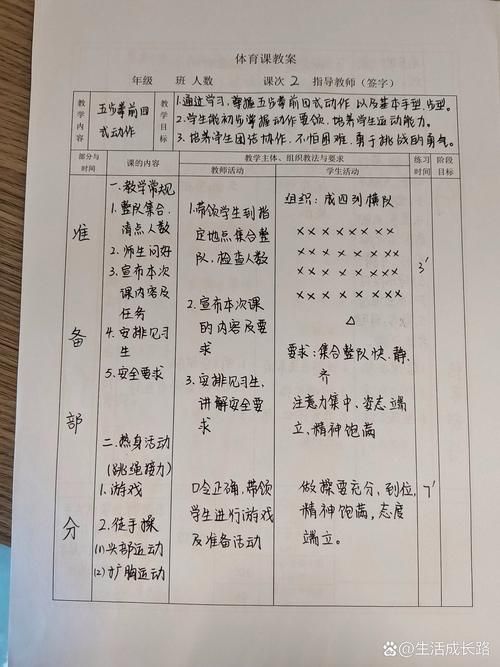 体育课教案
年级 班 人数 课次 2 指导教师（签字）
教学内容
五步拳前四式动作
教学目标
1.通过学习，掌握五步拳前四式动作以及基本手型、步型。
2.学生能初步掌握动作要领，培养学生运动能力。
3.培养学生团结协作，不怕困难，勇于挑战的勇气。
部分与时间
课的内容
教学主体、组织教法与要求
教师活动
学生活动
练习时间
阶段目标
准备部分
一.教学常规
1.整队集合，
清点人数
2.师生问好
3.宣布本次
课内容及
任务
4.安排见习
生
5.安全要求
二.热身活动
(跳绳接力)
1.游戏
2.徒手操
(1)头部运动
(2)扩胸运动
1.带领学生到指
定地点集合整
队，检查人数
2.宣布本次课
的内容及要
求
3.安排见习生，
讲解安全要
求
口令正确，带领
学生进行游戏
及准备活动
组织：成四列横队
××××××××
××××××××
××××××××
××××××××
△
要求：集合整队快、静、
齐
注意力集中、姿态端
立、精神饱满
做操要充分，到位，
精神饱满，态度
端立。
3'
7'
@生活成长路